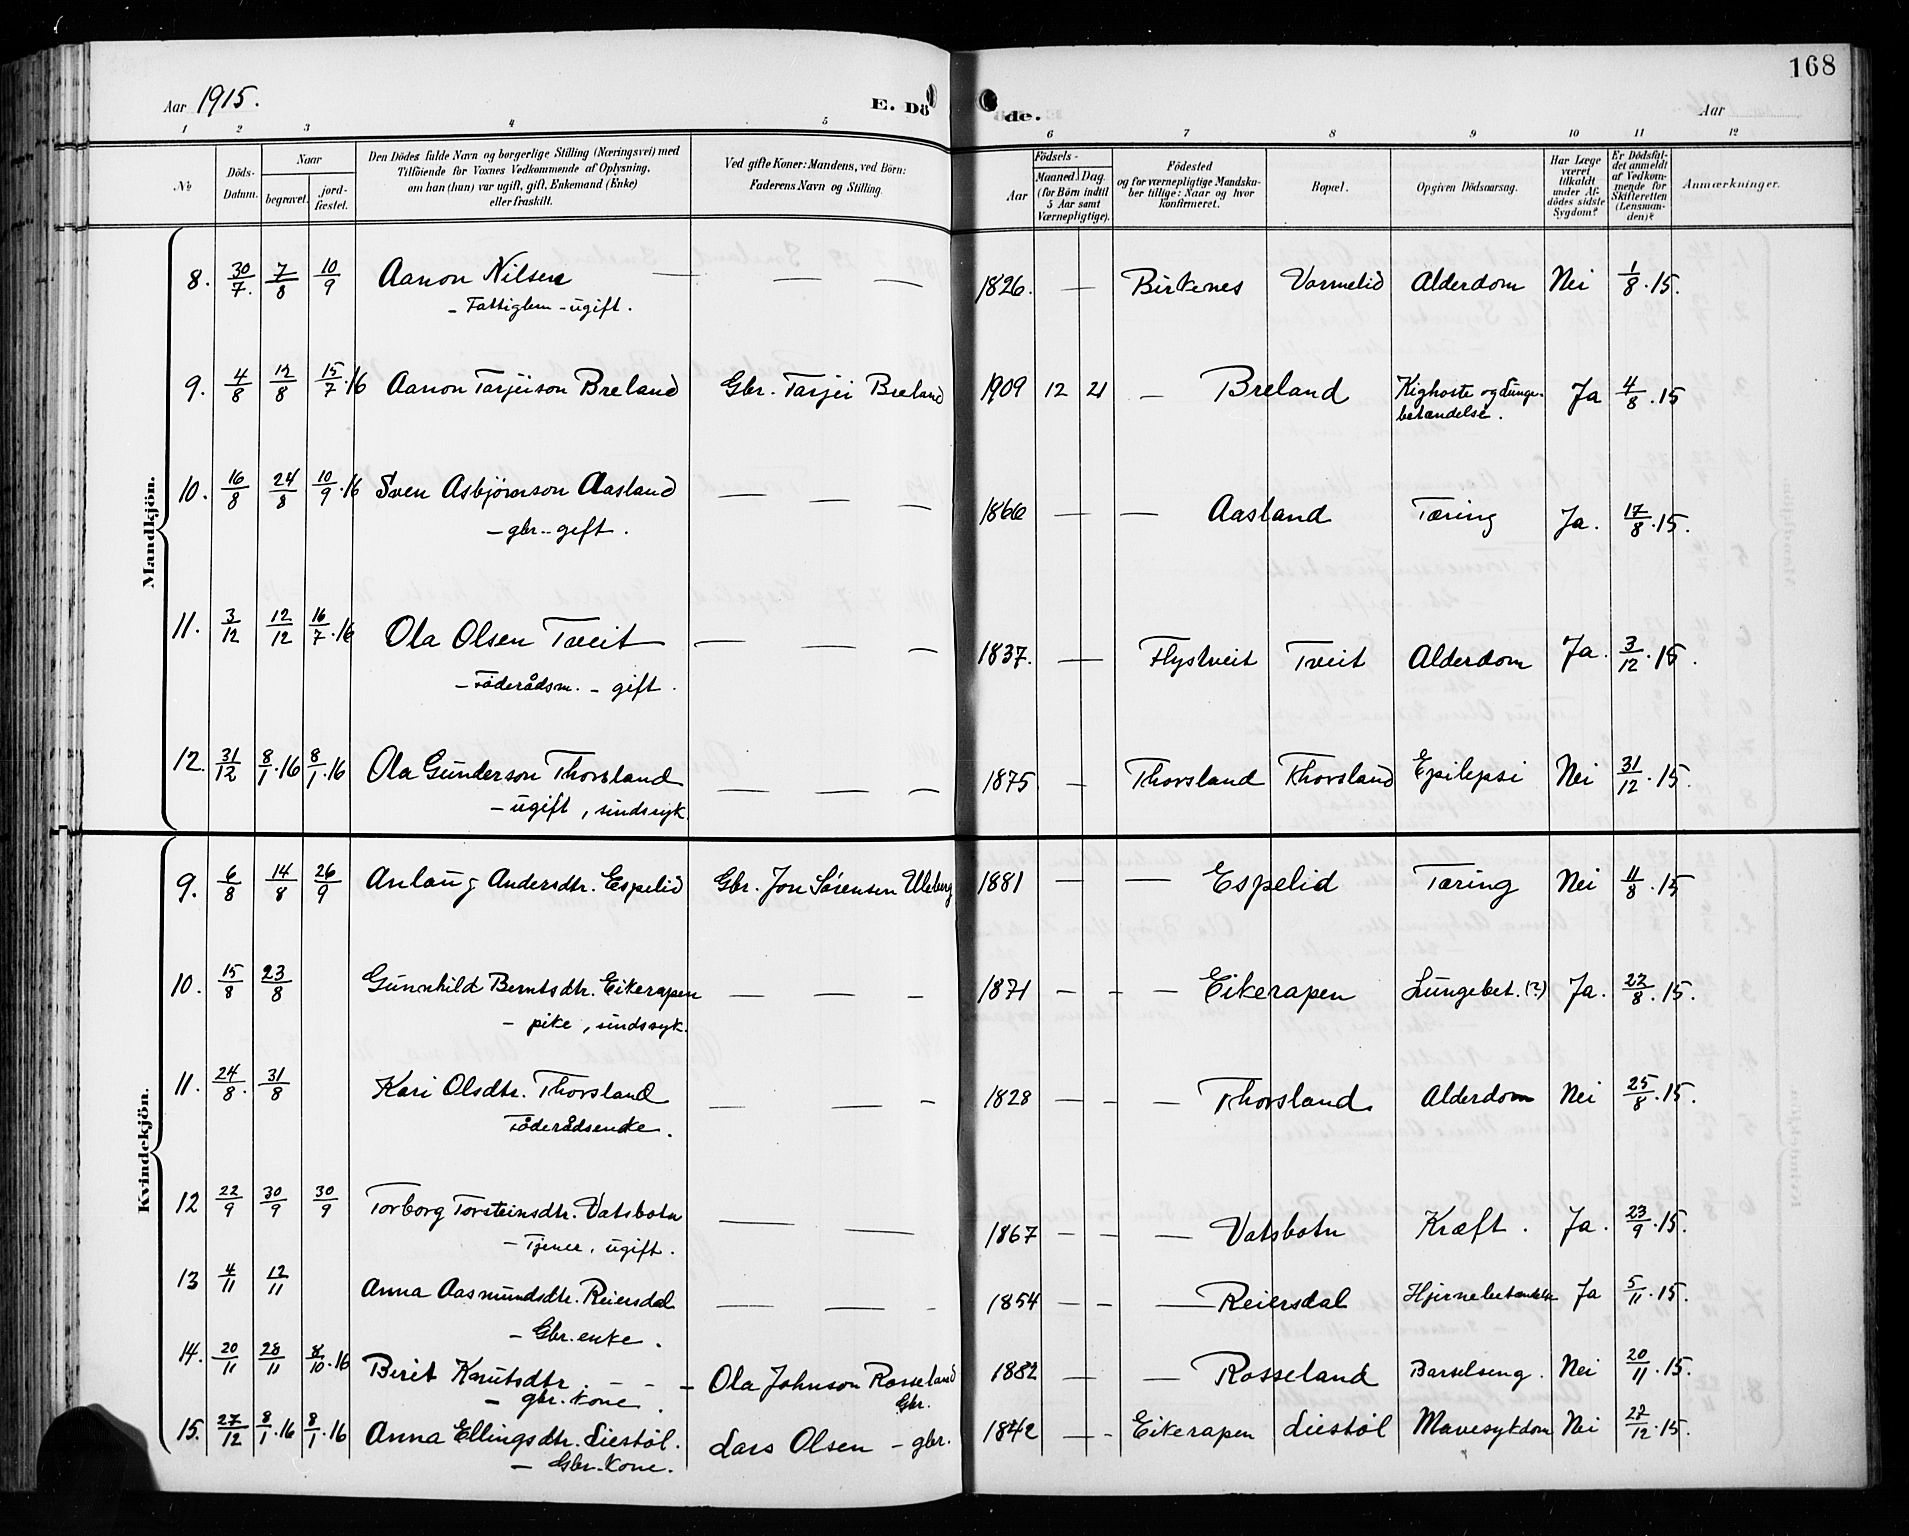 168
Aar 1915. E. Döde. Aar
1 2 3 4 5 6 7 8 9 10 11 12
№
Döds-Datum.
Naar
begravet.
jord-fæstet.
Den Dödes fulde Navn og borgerlige Stilling (Næringsvei) med
Tilföiende for Voxnes Vedkommende af Oplysning,
om han (hun) var ugift, gift, Enkemand (Enke)
eller fraskilt.
Ved gifte Koner: Mandens, ved Börn:
Faderens Navn og Stilling.
Födsels-
Aar
Maaned. Dag.
(for Börn indtil
5 Aar samt
Værnepligtige).
Födested
og for værnepligtige Mandska-
ber tillige: Naar og hvor
konfirmeret.
Bopæl.
Opgiven Dödsaarsag.
Har Læge
været
tilkaldt
under Af-
dödes sidste
Sygdom?
Er Dödsfal-
det anmeldt
af Vedkom-
mende for
Skifteretten
(Lensman-
den)?
Anmærkninger.
Mandkjön.
8. 30/7. 7/8 10/9 Aanon Nilsen — — — 1826. — Birkenes Varmelid Alderdom Nei 1/8.15.
- Fattiglem - ugift.
9. 4/8 12/8 15/7.16 Aanon Tarjeison Breland Gbr. Tarjei Breland 1909 12 21 — Breland Kighoste og Lunge-
betændelse. Ja 4/8.15
10. 16/8 24/8 10/9.16 Sven Asbjørnson Aasland — — — 1866 — — Aasland Tæring Ja. 17/8.15.
- gbr.- gift.
11. 3/12 12/12 16/7.16 Ola Olsen Tveit — — — 1837. — Flystveit Tveit Alderdom Ja. 3/12.15.
- Föderådsm. - gift.
12. 31/12 8/1.16 8/1.16 Ola Gunderson Thorsland — — — 1875 — Thorsland Thorsland Epilepsi Nei 31/12.15.
- ugift, sindssyk.
Kvindekjön.
9. 6/8 14/8 26/9 Anlaug Andersdtr. Espelid Gbr. Jon Sørensen Uleberg 1881 — — Espelid Tæring Nei 11/8.15
10. 15/8 23/8 Gunnhild Berntsdtr. Eikerapen — — - 1871 - - — Eikerapen Lungebet. (?) Ja. 22/8.15.
- pike, sindssyk.
11. 24/8. 31/8 Kari Olsdtr. Thorsland — — - 1828 — - — Thorsland. Alderdom Nei 25/8.15.
Föderådsenke.
12 22/9 30/9 30/9 Torborg Torsteinsdtr. Vatsbotn — — 1867 — - — Vatsbotn Kræft. Ja. 23/9.15.
- Tjener, ugift.
13 4/11 12/11 Anna Aasmundsdtr. Reiersdal — — - 1854 — - — Reiersdal Hjernebetændelse Ja 5/11.15.
- Gbr. enke.
14. 20/11 28/11 8/10.16 Berit Knutsdtr. - - - Ola Johnson Rosseland 1882 — — Rosseland Barselseng. Nei 20/11.15.
- gbr. kone. Gbr.
15. 27/12 8/1.16 8/1.16 Anna Ellingsdtr. Liestøl. Lars Olsen - gbr. 1842 — - Eikerapen Liestøl Mavesykdom Nei 27/12.15.
- Gbr. Kone.